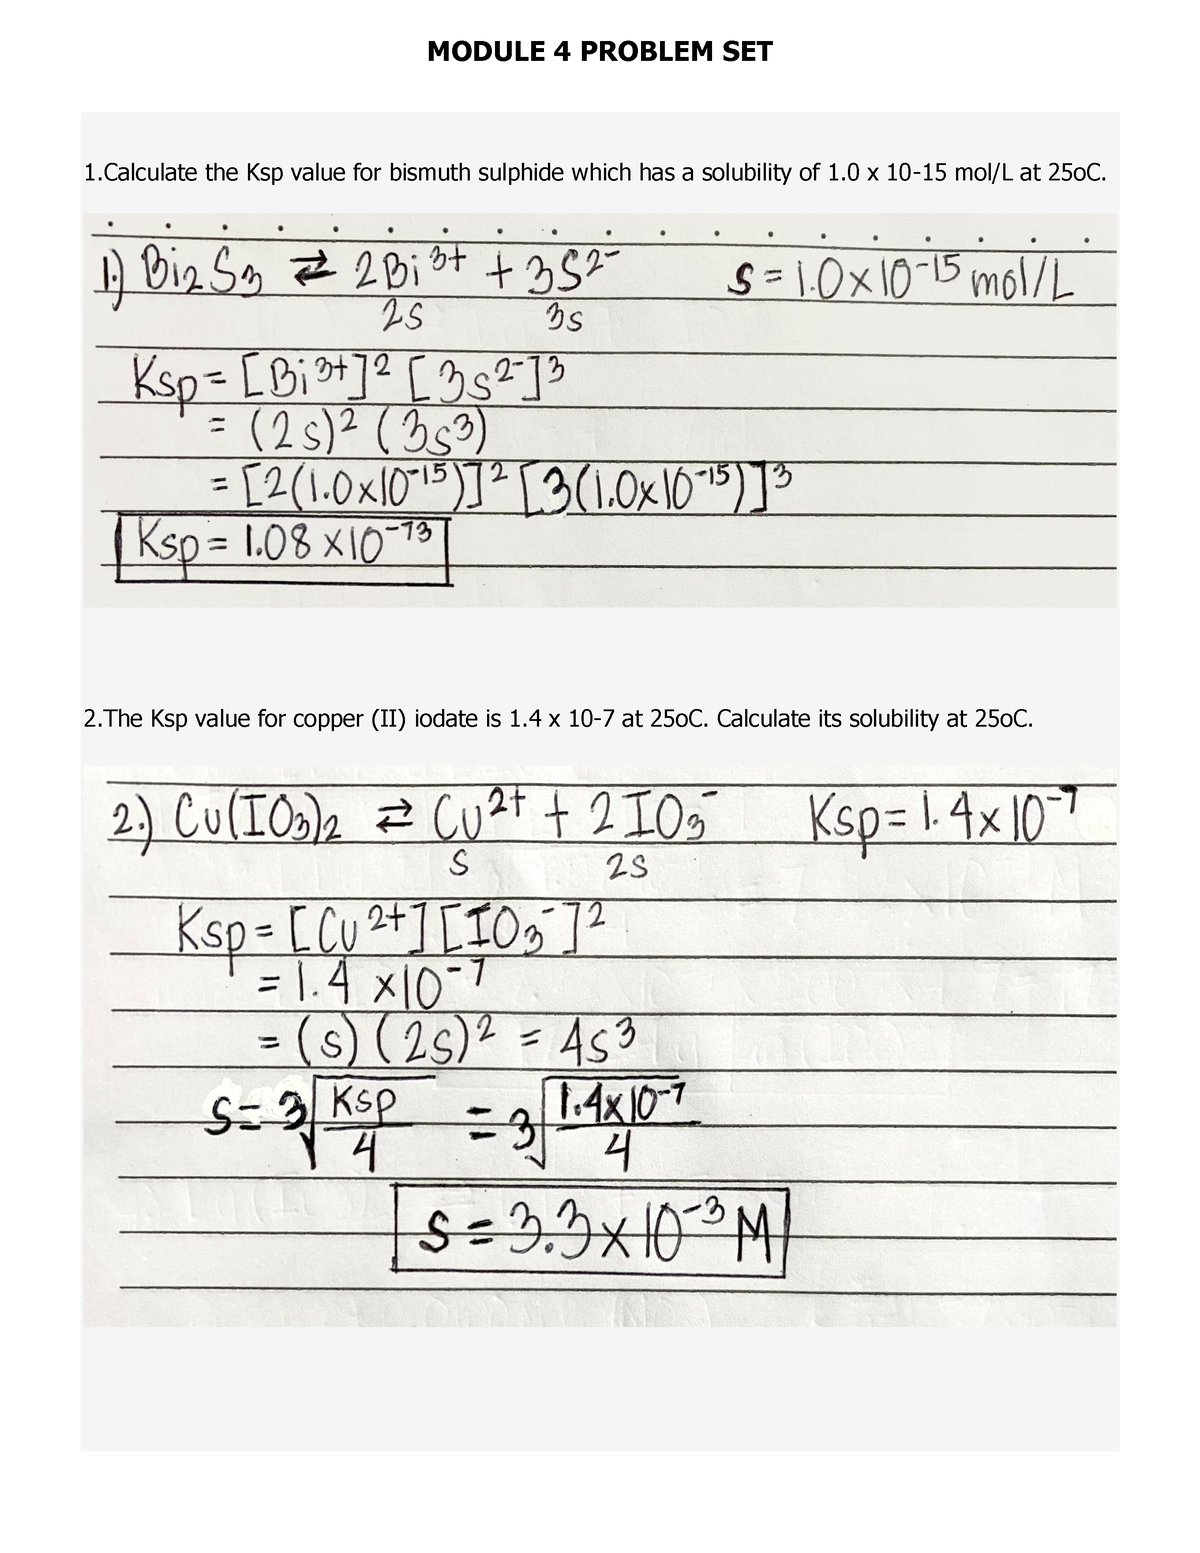 MODULE 4 PROBLEM SET
1.Calculate the Ksp value for bismuth sulphide which has a solubility of 1.0 x 10-15 mol/L at 25oC.
1.) Bi₂S₃ ⇄ 2Bi³⁺ + 3S²⁻ S = 1.0x10⁻¹⁵ mol/L
2s 3s
Ksp = [Bi³⁺]² [3s²⁻]³
= (2s)² (3s³)
= [2(1.0x10⁻¹⁵)]² [3(1.0x10⁻¹⁵)]³
Ksp = 1.08 x10⁻⁷³
2.The Ksp value for copper (II) iodate is 1.4 x 10-7 at 25oC. Calculate its solubility at 25oC.
2.) Cu(IO₃)₂ ⇄ Cu²⁺ + 2IO₃⁻ Ksp = 1.4x10⁻⁷
S 2S
Ksp = [Cu²⁺][IO₃⁻]²
= 1.4 x10⁻⁷
= (s)(2s)² = 4s³
S = ³√(Ksp/4) = ³√(1.4x10⁻⁷/4)
S = 3.3x10⁻³ M